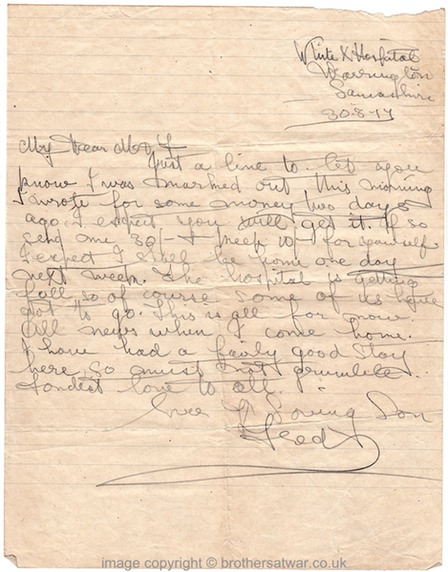 White X Hospital
Warrington
Lancashire
30.8.17
My Dear M & F
Just a line to let you
know I was marked out this morning
I wrote for some money two days
ago. I expect you will get it. If so
send me 30/- & keep 10/- for yourselfs
I expect I shall be home one day
next week. The hospital is getting
full so of course some of us have
got to go. This is all for now.
All news when I come home.
I have had a fairly good stay
here, so must not grumble.
Fondest love to all
Your Loving Son
image copyright © brothersatwar.co.uk